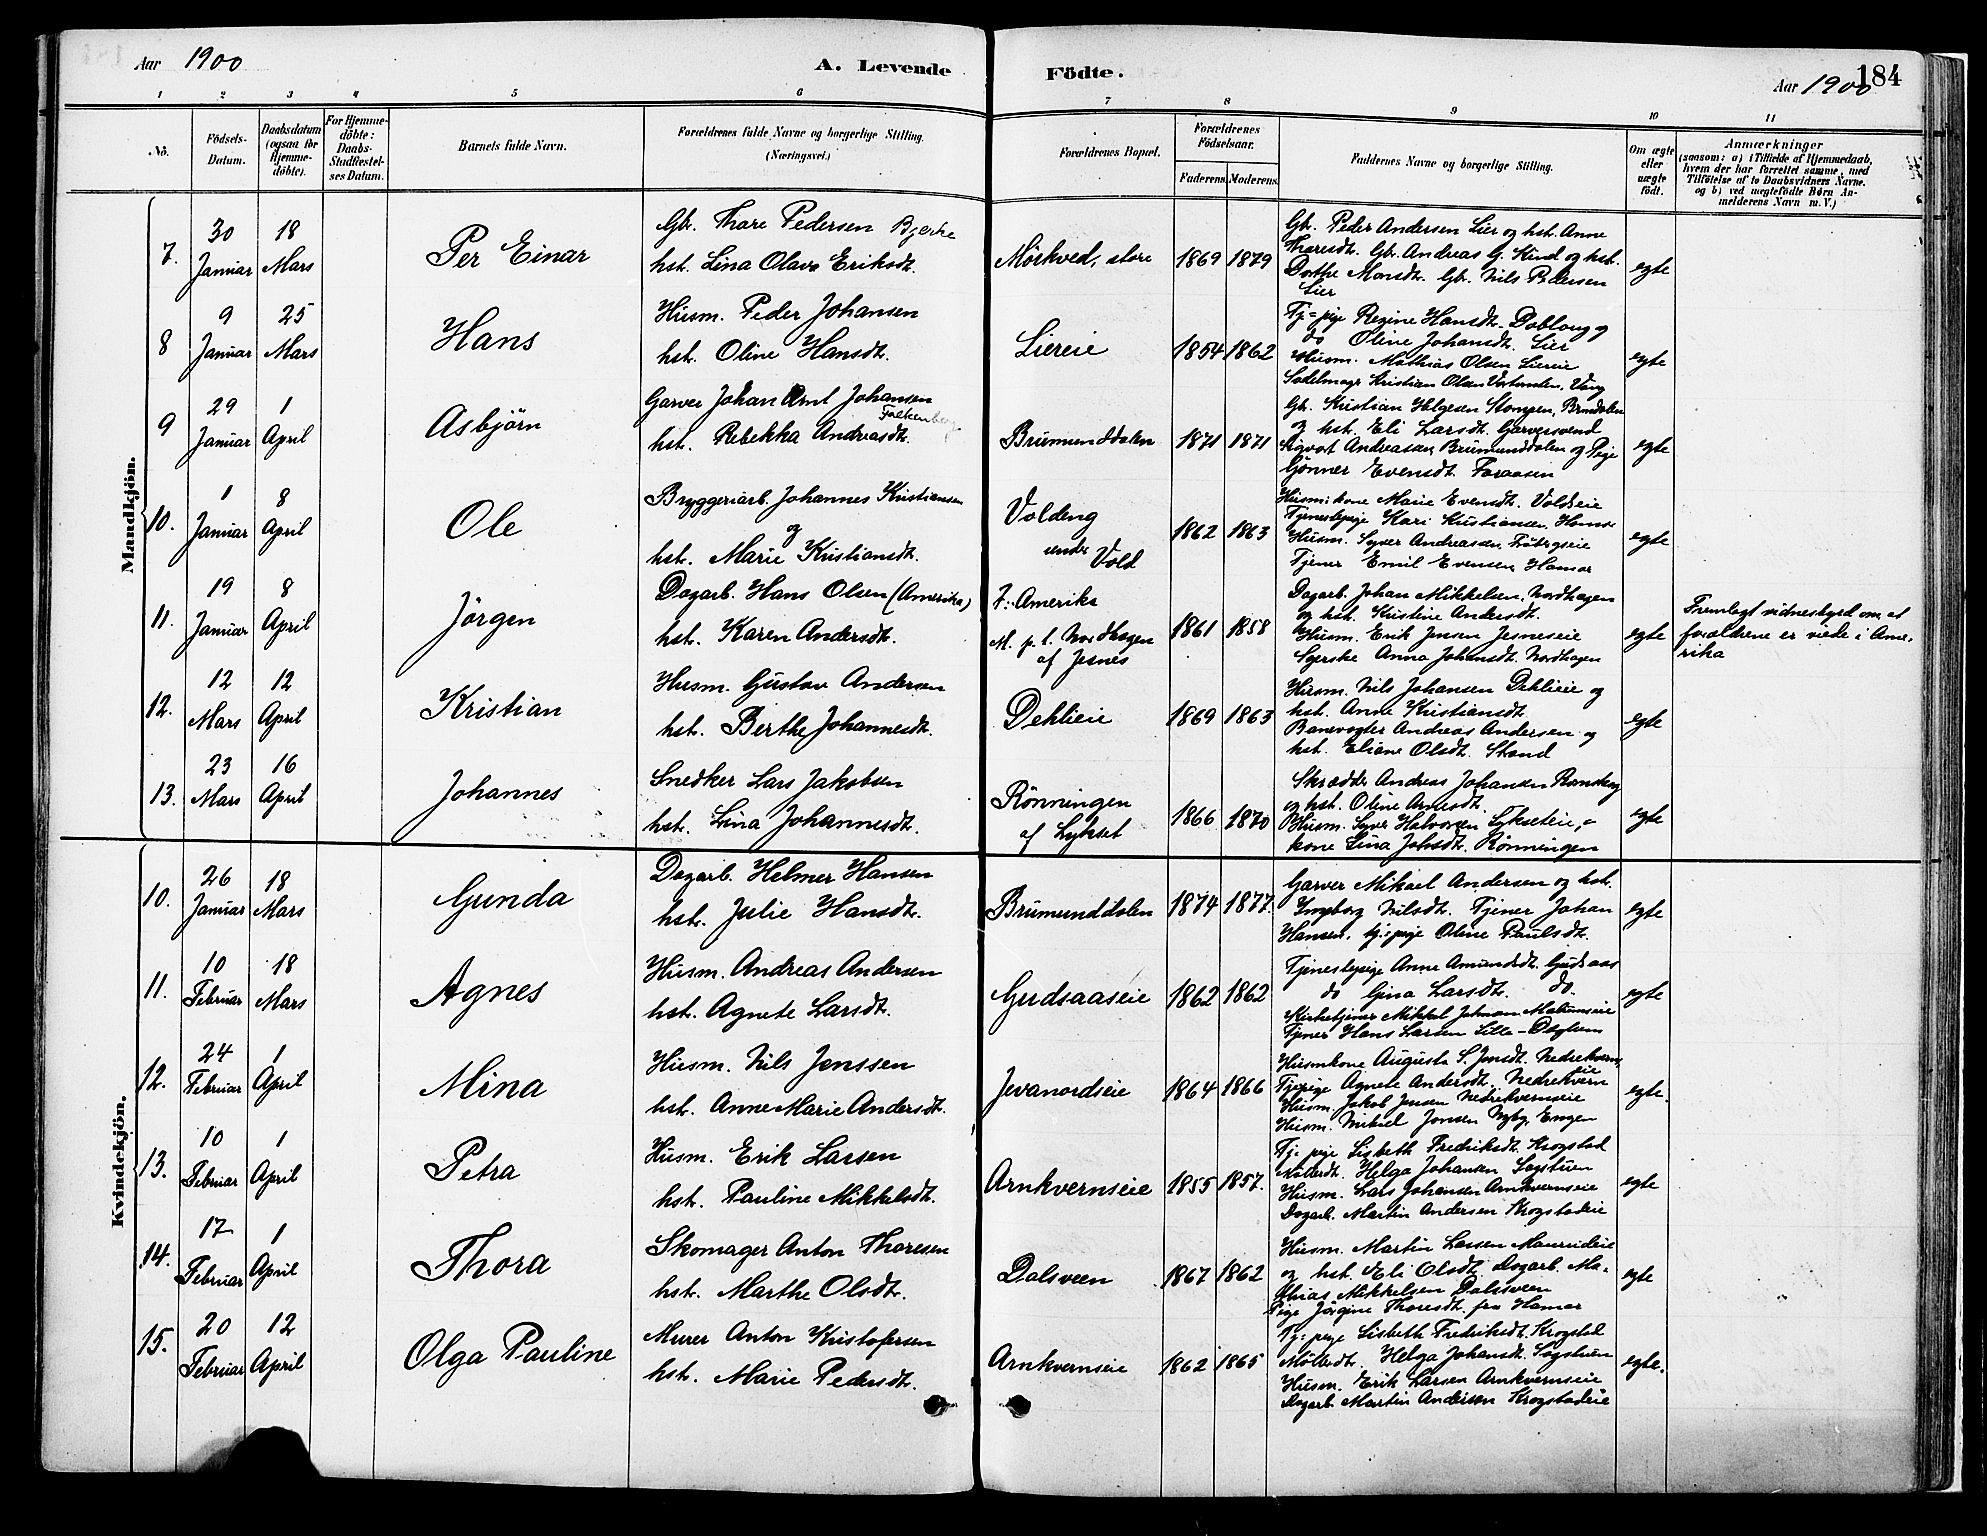 Aar 1900
A. Levende Födte.
Aar 1900
184
1 2 3 4 5 6 7 8 9 10 11
No.
Födsels-
Datum.
Daabsdatum
(ogsaa for
Hjemme-
döbte).
For Hjemme-
döbte:
Daabs-
Stadfæstel-
ses Datum.
Barnets fulde Navn.
Forældrenes fulde Navne og borgerlige Stilling.
(Næringsvei.)
Forældrenes Bopæl.
Forældrenes
Födselsaar.
Faderens. Moderens.
Faddernes Navne og borgerlige Stilling.
Om ægte
eller
uægte
født.
Anmærkninger
(saasom: a) i Tilfælde af Hjemmedaab,
hvem der har forrettet samme, med
Tilföielse af to Daabsvidners Navne,
og b) ved uægtefödte Børn An-
melderens Navn m. V.)
Mandkjön.
7.
30 Januar
18 Mars
Per Einar
Gbr. Thore Pedersen Bjerke
hst. Lina Olava Eriksdt.
Mörkved, store
1869 1879
Gbr. Peder Andersen Lier og hst. Anne
Thoresdt. Gbr. Andreas G. Kind og hst.
Dorthe Monsdt. Gbr. Nils Pedersen
Lier
egte
8
9 Januar
25 Mars
Hans
Husm. Peder Johansen
hst. Oline Hansdt.
Liereie
1854 1862
Tj=pige Regine Hansdt. Dobloug og
do Oline Johansdt. Lier
Husm. Mathias Olsen Liereie
Sadelmagr Kristian Olsen Vestumlien, Vang
egte
9
29 Januar
1 April
Asbjörn
Garver Johan Arnt Johansen
Falkenberg
hst. Rebekka Andreasdt.
Brumunddalen
1871 1871
Gbr. Kristian Helgesen Stompen, Brmdalen
og hst. Eli Larsdt. Garversvend
Sigvart Andreassen, Brumunddalen og Pige
Gönner Evensdt. Faraasen
egte
10.
1 Januar
8 April
Ole
Bryggeriarb. Johannes Kristiansen
og
hst. Marie Kristiansdt.
Voldeng
under
Vold
1862 1863
Husm:kone Marie Evensdt. Voldseie
Tjenestepige Kari Kristiansen, Hamar
Husm. Syver Andreassen,
Tjener Emil Evensen, Hamar
egte
11.
19 Januar
8 April
Jörgen
Dagarb. Hans Olsen (Amerika)
hst. Karen Andersdt.
F: Amerika
M. p. t. Nordhagen
af Jesnes
1861 1858
Dagarb. Johan Mikkelsen, Nordhagen
og hst. Kristine Andersdt.
Husm. Erik Jensen Jesneseie
Syerske Anna Johansdt. Nordhagen
egte
Fremlagt vidnesbyrd om, at
forældrene er viede i Ame-
rika
12.
12 Mars
12 April
Kristian
Husm. Gustav Andersen
hst. Berthe Johannesdt.
Dehlieie
1869 1863
Husm. Nils Johansen Dehlieie og
hst. Anne Kristiansdt.
Banevogter Andreas Andersen og
hst. Eliane Olsdt. Strand
egte
13.
23 Mars
16 April
Johannes
Snedker Lars Jakobsen
hst. Lina Johannesdt.
Rönningen
af Lykset
1866 1870
Skrædder Andreas Johansen
og hst. Oline Arnesdt.
Husm. Syver Halvorsen Lykseteie,
kone Lina Johsdt. Rönningen
egte
Kvindekjön.
10.
26 Januar
18 Mars
Gunda
Dagarb. Helmer Hansen
hst. Julie Hansdt.
Brumunddalen
1874 1877.
Garver Mikael Andersen og hst.
Ingeborg Nilsdt. Tjener Johan
Hansen, tj:pige Oline Paulsdt.
egte
11.
10 Februar
18 Mars
Agnes
Husm. Andreas Andersen
hst. Agnete Larsdt.
Gudsaaseie
1862 1862
Tjenestepige Anne Amundsdt. Gudsaas
do Gina Larsdt. do.
Kirketjener Mikkel Johnsen
Tjener Hans Larsen Lille-
egte
12.
24 Februar
1 April
Mina
Husm. Nils Jenssen
hst. Anne Marie Andersdt.
Jevanordseie
1864 1866
Husmkone Augusta S. Jensdt. Nedrekverns
eie
Tjepige Agnete Andersdt. Nedrekvern
Husm. Jakob Jensen Nedrekvernseie
Husm. Mikkel Jensen Nyby, Engen
egte.
13.
10 Februar
1 April
Petra
Husm. Erik Larsen
hst. Pauline Mikkelsdt.
Arnkvernseie
1855 1857.
Tj. pige Lisbeth Fredriksdt. Krogstad
Helga Johansen Sagstuen
Husm. Lars Johansen Arnkvernseie
Dagarb. Martin Andersen Krogstadeie
egte
14.
17 Februar
1 April
Thora
Skomager Anton Thoresen
hst. Marthe Olsdt.
Dalsveen
1867 1862
Husm. Martin Larsen Maurudeie
og hst. Eli Olsdt. Dagarb. Ma-
thias Mikkelsen Dalsveen
Pige Jörgine Thoresdt. fra Hamar
egte
15.
20 Februar
12 April
Olga Pauline
Murer Anton Kristofersen
hst. Marie Pedersdt.
Arnkvernseie
1862 1865
Tj=pige Lisbeth Fredriksdt. Krogstad
Mölledt. Helga Johansdt. Sagstuen
Husm. Erik Larsen Arnkvernseie
Dagarb. Martin Andersen Krogstadeie
egte.